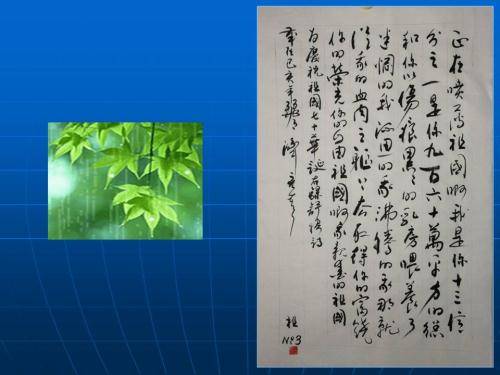 正在喷薄祖国啊我是你十三亿
分之一是你九百六十万平方的总
和你以伤痕累累的乳房喂养了
迷惘的我深思的我沸腾的我那就
从我的血肉之躯上去取得你的富饶
你的荣光你的自由祖国啊我亲爱的祖国
为庆祝祖国七十华诞
岁在己亥年
祖
No3